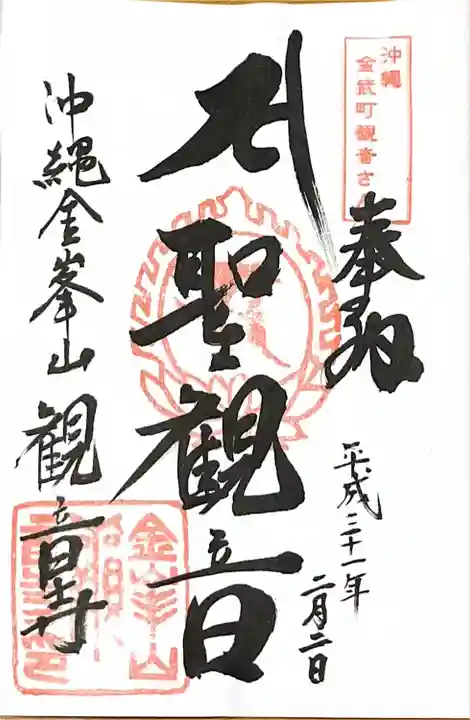 沖縄
金武町観音さん
奉拝
平成三十一年
二月二日
聖観音
沖縄金峯山観音寺
金峯山